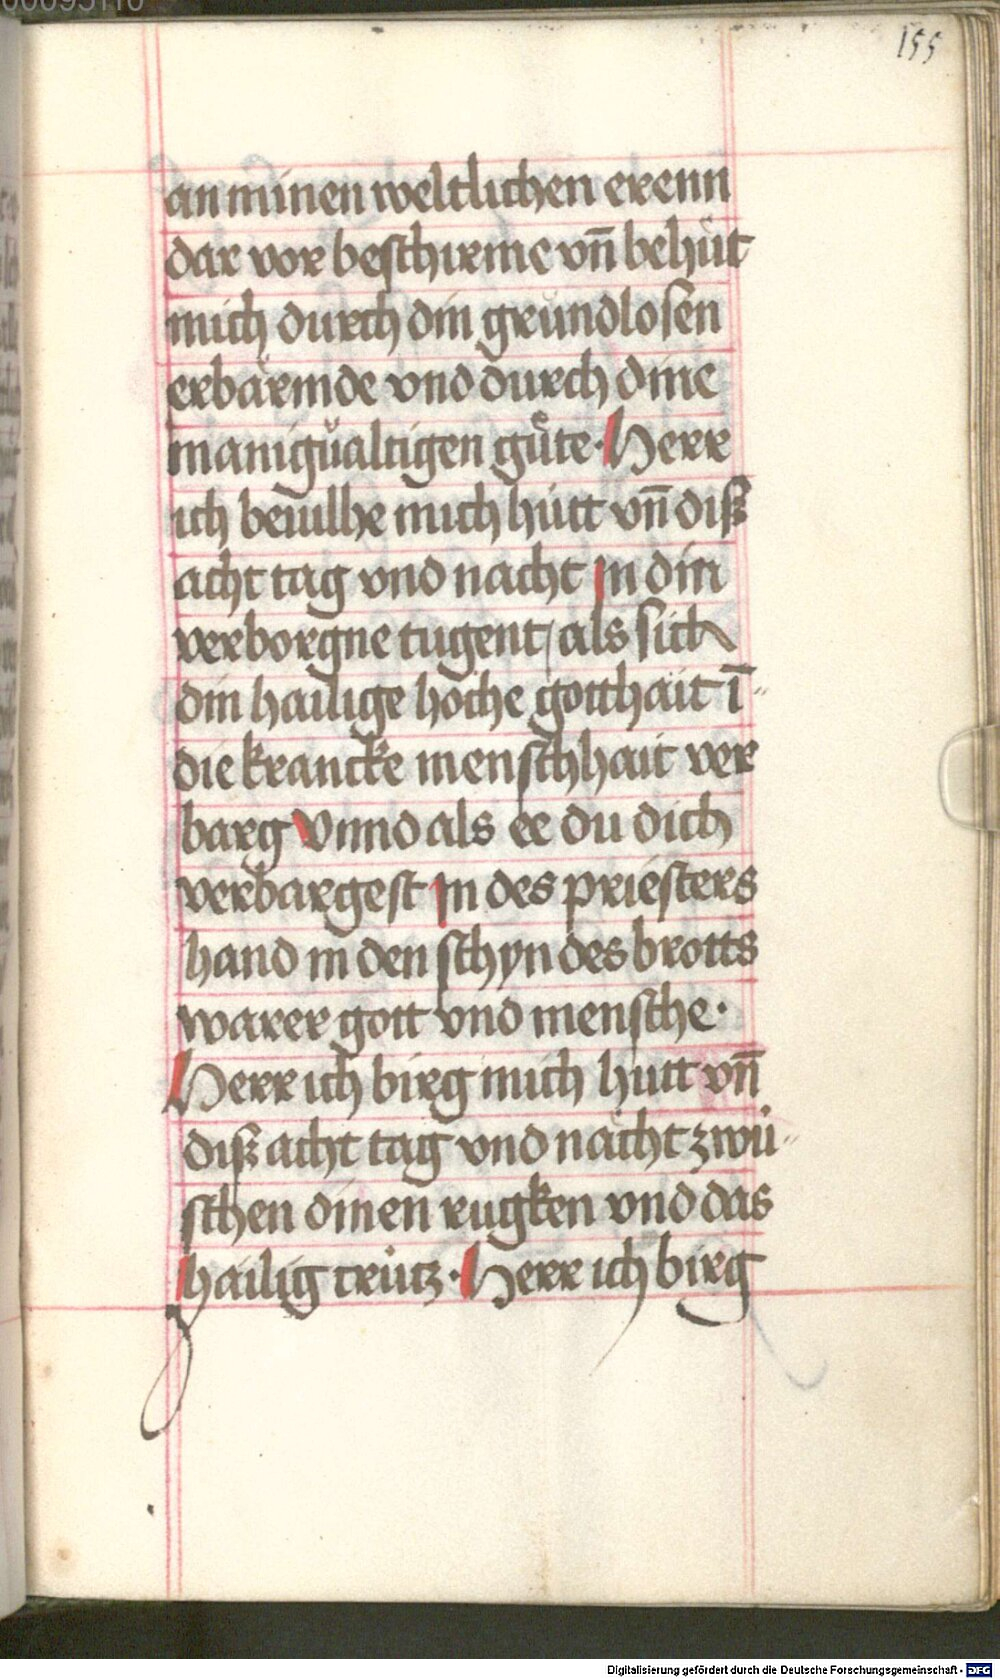 155
an minen weltlichen erenn
dar vor beschirme vn̄ behüt
mich durch din grundlosen
erbärmde vnd durch dine
manigualtigen gu̍te· Herr
ich beuilhe mich hütt vn̄ diß
acht tag vnd nacht in din
verborgne tugent / als sich
din hailige hoche gotthait ī-
die krancke menschhait ver
barg Vnnd als ee du dich
verbargest in des priesters
hand in den schyn des brotts
warer gott vnd mensche·
Herr ich birg mich hutt vn̄
diß acht tag vnd nächt zwü-
schen dinen rugken vnd das
hailig crütz· Herr ich birg
Digitalisierung gefördert durch die Deutsche Forschungsgemeinschaft - DFG